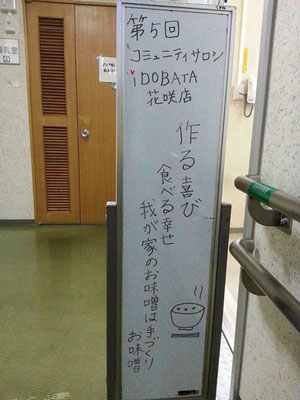 第5回
コミュニティサロン
iDOBATA
花咲店
作る喜び
食べる幸せ
我が家のお味噌は手づくり
お味噌